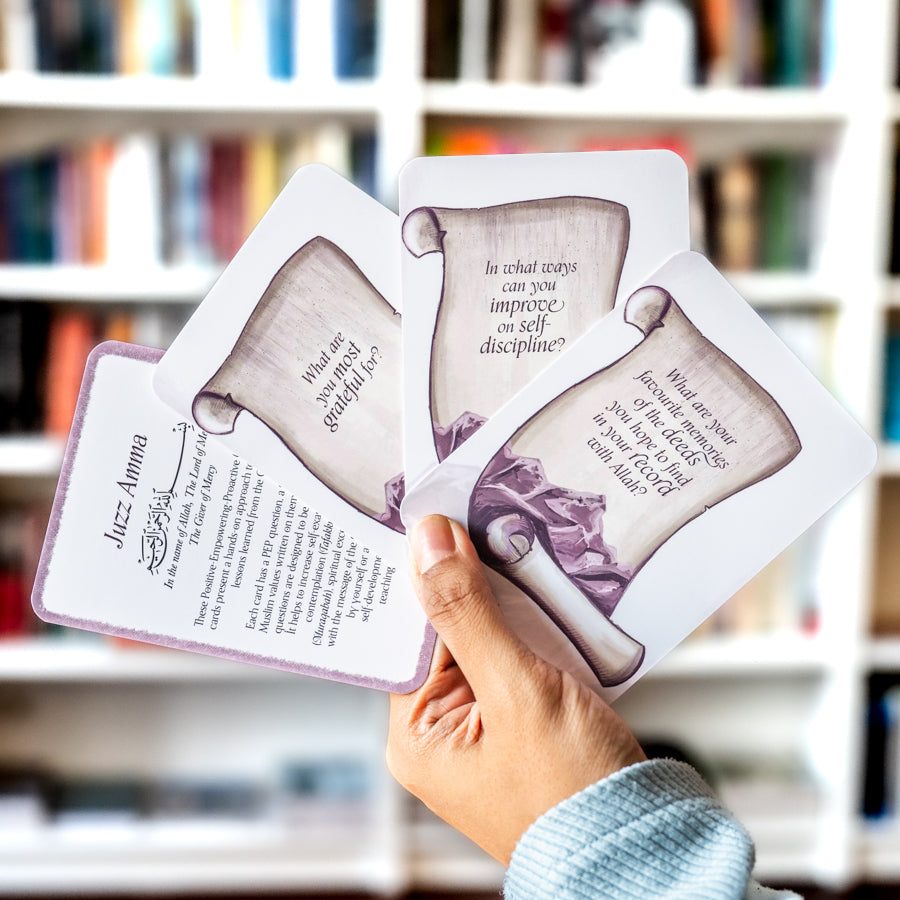 Juzz Amma
بِسْمِ اللَّهِ الرَّحْمَٰنِ الرَّحِيمِ
In the name of Allah, The Lord of
The Giver of Mercy
These Positive-Empowering-Proactive
cards present a hands-on approach
lessons learned from the
Each card has a PEP question, a
Muslim values written on them
questions are designed to be
It helps to increase self-
contemplation
(Muraqabah), spiritual
with the message of the
by yourself or a
self-development
teaching
What are
you most
grateful for?
In what ways
can you
improve
on self-
discipline?
What are your
favourite memories
of the deeds
you hope to find
in your record
with Allah?